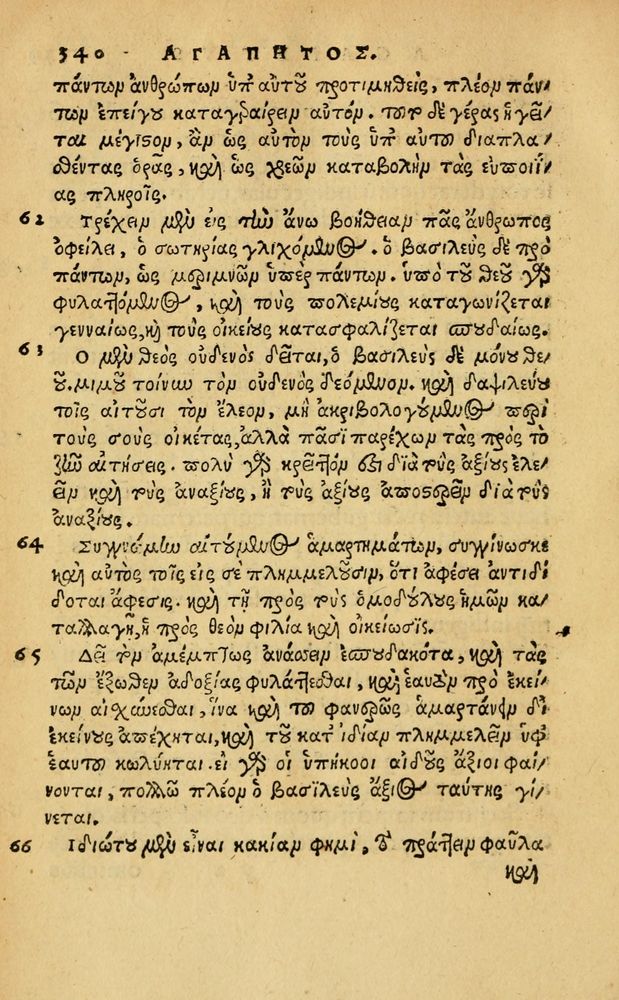 340 ΑΓΑΠΗΤΟΣ.
πάντων ἀνθρώπων ὑπ' αὐτοῦ προτιμηθεὶς, πλέον πάν/
των ἐπείγου καταγεραίρειν αὐτόν. τὸ δὲ γέρας ἡγεῖ/
ται μέγιστον, ἂν ὡς αὐτὸν τοὺς ὑπ' αὐτοῦ διαπλα/
σθέντας ὁρᾷς, καὶ ὡς χρεῶν καταβολὴν τὰς εὐποιΐ/
ας πληροῖς.
62 Τρέχειν μὲν εἰς τὴν ἄνω βοήθειαν πᾶς ἄνθρωπος
ὀφείλει, ὁ σωτηρίας γλιχόμενος. ὁ βασιλεὺς δὲ πρὸ
πάντων, ὡς μεριμνῶν ὑπὲρ πάντων. ὑπὸ τοῦ θεοῦ γὰρ
φυλαττόμενος, καὶ τοὺς πολεμίους καταγωνίζεται
γενναίως, καὶ τοὺς οἰκείους κατασφαλίζεται σπουδαίως.
63 Ο μὲν θεὸς οὐδενὸς δεῖται, ὁ βασιλεὺς δὲ μόνου θε/
οῦ. μιμοῦ τοίνυν τὸν οὐδενὸς δεόμενον. καὶ δαψιλεύου
τοῖς αἰτοῦσι τὸν ἔλεον, μὴ ἀκριβολογούμενος περὶ
τοὺς σοὺς οἰκέτας, ἀλλὰ πᾶσι παρέχων τὰς πρὸς τὸ
ζῆν αἰτήσεις. πολὺ γὰρ κρεῖττόν ἐστι διὰ τοὺς ἀξίους ἐλε/
εῖν καὶ τοὺς ἀναξίους, ἢ τοὺς ἀξίους ἀποστερεῖν διὰ τοὺς
ἀναξίους.
64 Συγγνώμην αἰτούμενος ἁμαρτημάτων, συγγίνωσκε
καὶ αὐτὸς τοῖς εἰς σὲ πλημμελοῦσιν, ὅτι ἀφέσει ἀντιδί
δοται ἄφεσις. καὶ τῇ πρὸς τοὺς ὁμοδούλους ἡμῶν κα/
ταλλαγῇ, ἡ πρὸς θεὸν φιλία καὶ οἰκείωσις.
65 Δεῖ τὸν ἀμέμπτως ἀνάσσειν ἐσπουδακότα, καὶ τὰς
τῶν ἔξωθεν ἀδοξίας φυλάττεσθαι, καὶ ἑαυτὸν πρὸ ἐκεί/
νων αἰσχύνεσθαι, ἵνα καὶ τοῦ φανερῶς ἁμαρτάνειν δι'
ἐκείνους ἀπέχηται, καὶ τοῦ κατ' ἰδίαν πλημμελεῖν ὑφ'
ἑαυτοῦ κωλύηται. εἰ γὰρ οἱ ὑπήκοοι αἰδοῦς ἄξιοι φαί/
νονται, πολλῷ πλέον ὁ βασιλεὺς ἄξιος ταύτης γί/
νεται.
66 Ιδιώτου μὲν εἶναι κακίαν φημὶ, τὸ πράττειν φαῦλα
καὶ